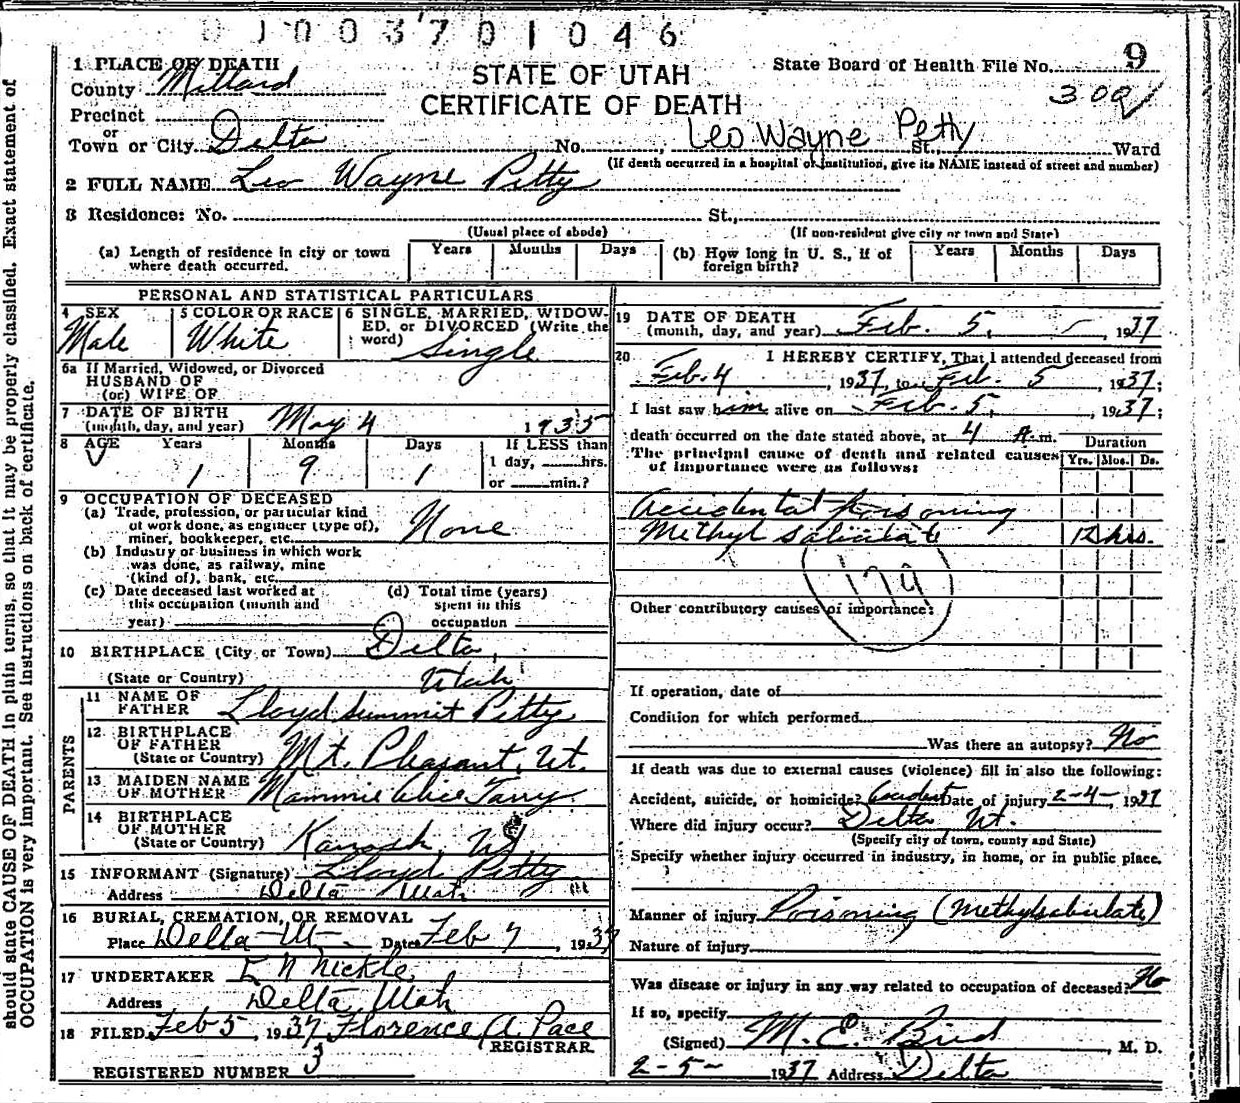 0 1 0 0 3 7 0 1 0 4 6
1 PLACE OF DEATH
County Millard
Precinct
or
Town or City Delta No. St., Ward
STATE OF UTAH
CERTIFICATE OF DEATH
State Board of Health File No. 9
309
Leo Wayne Petty
(If death occurred in a hospital or institution, give its NAME instead of street and number)
2 FULL NAME Leo Wayne Petty
3 Residence: No. St.,
(Usual place of abode) (If non-resident give city or town and State)
(a) Length of residence in city or town where death occurred. Years Months Days (b) How long in U. S., if of foreign birth? Years Months Days
PERSONAL AND STATISTICAL PARTICULARS
4 SEX
Male
5 COLOR OR RACE
White
6 SINGLE, MARRIED, WIDOW-
ED, or DIVORCED (Write the
word) Single
6a If Married, Widowed, or Divorced
HUSBAND OF
(or) WIFE OF
7 DATE OF BIRTH
(month, day, and year) May 4 1935
8 AGE Years Months Days If LESS than
1 9 1 1 day, hrs.
or min.?
9 OCCUPATION OF DECEASED
(a) Trade, profession, or particular kind
of work done, as engineer (type of),
miner, bookkeeper, etc. None
(b) Industry or business in which work
was done, as railway, mine
(kind of), bank, etc.
(c) Date deceased last worked at
this occupation (month and
year)
(d) Total time (years)
spent in this
occupation
10 BIRTHPLACE (City or Town) Delta,
(State or Country) Utah
PARENTS
11 NAME OF
FATHER Lloyd Summit Petty
12 BIRTHPLACE
OF FATHER
(State or Country) Mt. Pleasant, Ut.
13 MAIDEN NAME
OF MOTHER Mammie Alice Terry
14 BIRTHPLACE
OF MOTHER
(State or Country) Kanosh, Ut.
15 INFORMANT (Signature) Lloyd Petty
Address Delta Utah
16 BURIAL, CREMATION, OR REMOVAL
Place Delta Ut. Date Feb 7, 1937
17 UNDERTAKER E N Nickle
Address Delta, Utah
18 FILED Feb 5 1937 Florence A. Pace
REGISTRAR
REGISTERED NUMBER 3
19 DATE OF DEATH
(month, day, and year) Feb. 5, 1937
20 I HEREBY CERTIFY, That I attended deceased from
Feb. 4, 1937, to Feb. 5, 1937;
I last saw him alive on Feb. 5, 1937;
death occurred on the date stated above, at 4 A.m.
The principal cause of death and related causes
of importance were as follows:
Duration
Yrs. Mos. Ds.
Accidental poisoning
Methyl Salicilate 12 hrs.
179
Other contributory causes of importance:
If operation, date of
Condition for which performed
Was there an autopsy? No
If death was due to external causes (violence) fill in also the following:
Accident, suicide, or homicide? Accident Date of injury 2-4-, 1937
Where did injury occur? Delta Ut.
(Specify city of town, county and State)
Specify whether injury occurred in industry, in home, or in public place.
Manner of injury Poisoning (Methylsalicilate)
Nature of injury
Was disease or injury in any way related to occupation of deceased? No
If so, specify
(Signed) M. E. Bird, M. D.
2-5- 1937 Address Delta
should state CAUSE OF DEATH in plain terms, so that it may be properly classified. Exact statement of
OCCUPATION is very important. See instructions on back of certificate.